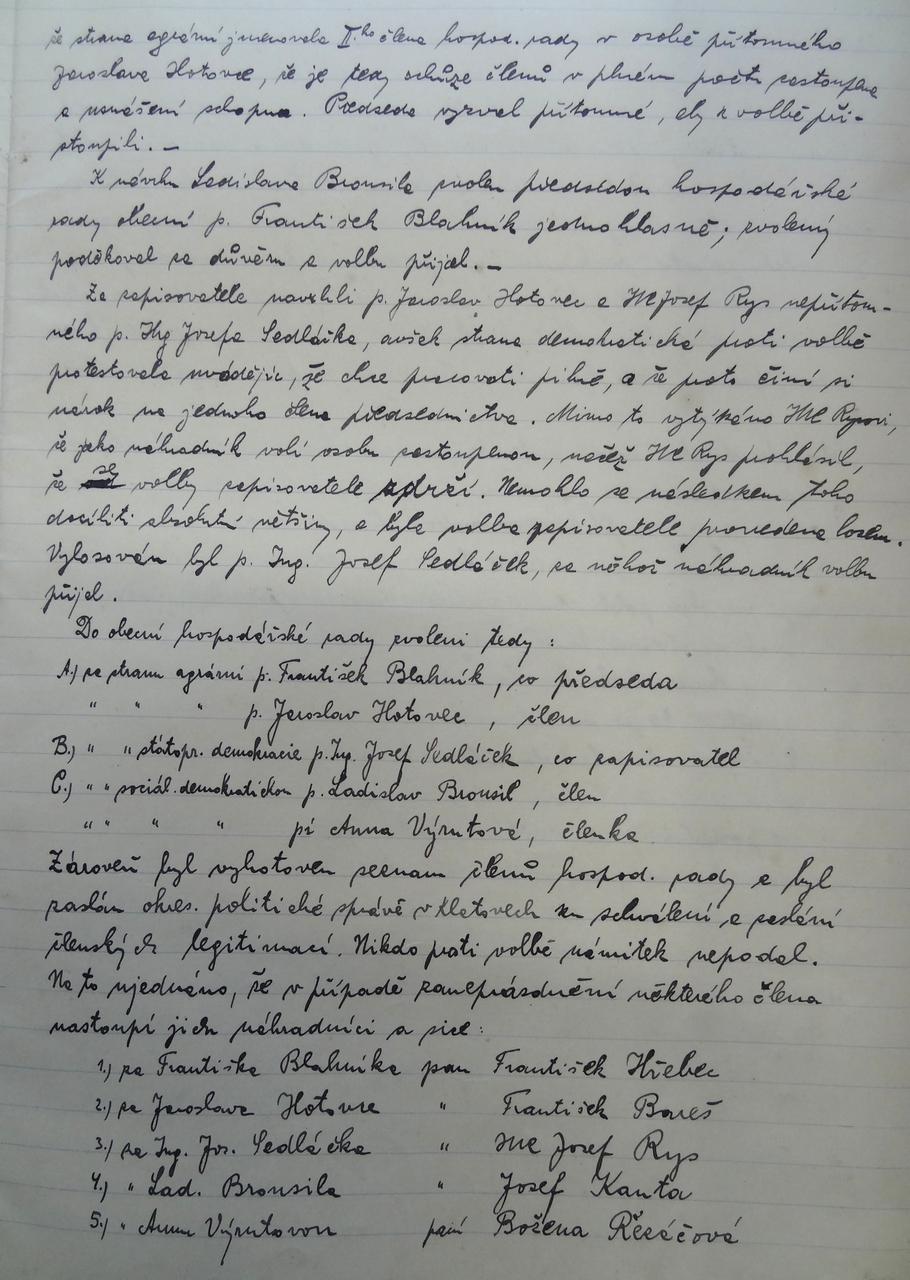 že strana agrární jmenovala II.ho člena hospod. rady v osobě přítomného
Jaroslava Hotovce, že je tedy schůze členů v plném počtu zastoupena
a usnášení schopna. Předseda vyzval přítomné, aby k volbě při-
stoupili. —
K návrhu Ladislava Brousila zvolen předsedou hospodářské
rady obecní p. František Blahník jednohlasně; zvolený
poděkoval za důvěru a volbu přijal. —
Za zapisovatele navrhli p. Jaroslav Hotovec a Josef Rys nepřítom-
ného p. Ing Josefa Sedláčka, avšak strana demokratická proti volbě
protestovala uvádějíc, že chce pracovati pilně, a že proto činí si
nárok na jednoho člena předsednictva. Mimo to vytýkáno Rysovi,
že jako náhradník volí osobu zastoupenou, načež Rys prohlásil,
že se volby zapisovatele zdrží. Nemohlo se následkem toho
docíliti absolutní většiny, a byla volba zapisovatele provedena losem.
Vylosován byl p. Ing. Josef Sedláček, za něhož náhradník volbu
přijal.
Do obecní hospodářské rady zvoleni tedy:
A.) za stranu agrární p. František Blahník, co předseda
" " " p. Jaroslav Hotovec, člen
B.) " " státopr. demokracie p. Ing. Josef Sedláček, co zapisovatel
C.) " " sociál. demokratickou p. Ladislav Brousil, člen
" " " " pí Anna Výrutová, členka
Zároveň byl vyhotoven seznam členů hospod. rady a byl
zaslán okres. politické správě v Klatovech ku schválení a zaslání
členských legitimací. Nikdo proti volbě námitek nepodal.
Na to ujednáno, že v případě zaneprázdnění některého člena
nastoupí jich náhradníci a sice:
1.) za Františka Blahníka pan František Hřebec
2.) za Jaroslava Hotovce " František Bareš
3.) za Ing. Jos. Sedláčka " Josef Rys
4.) " Lad. Brousila " Josef Kanta
5.) " Annu Výrutovou paní Božena Řezáčová